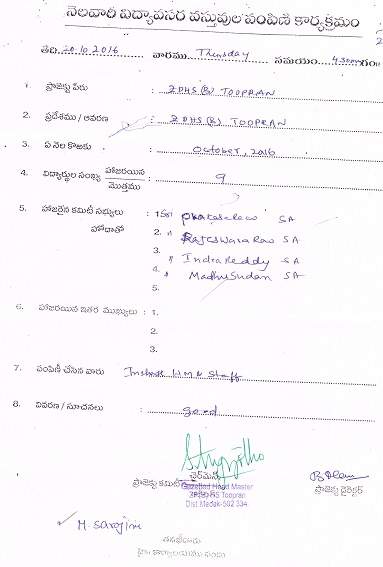 నెలవారీ విద్యావసర వస్తువుల పంపిణీ కార్యక్రమం
తేది 20.10.2016 వారము Thursday సమయం 4.30pm గం॥
1. ప్రాజెక్టు పేరు : ZPHS(B) TOOPRAN
2. ప్రదేశము / ఆవరణ : ZPHS(B) TOOPRAN
3. ఏ నెల కొఱకు : October, 2016
4. విద్యార్థుల సంఖ్య హాజరయిన / మొత్తము : 9
5. హాజరైన కమిటీ సభ్యులు : 1. Sri Prakasa Rao SA
హోదాతో 2. " Rajeswara Rao SA
3. " Indra Reddy SA
4. " Madhu Sudan SA
5.
6. హాజరయిన ఇతర ముఖ్యులు : 1.
2.
3.
7. పంపిణీ చేసిన వారు : HM & Staff
8. వివరణ / సూచనలు : good
ఛైర్మెన్
ప్రాజెక్టు కమిటీ
Gazetted Head Master
ZP(B)HS Toopran
Dist Medak-502 334
ప్రాజెక్టు డైరెక్టర్
M. Sarojini